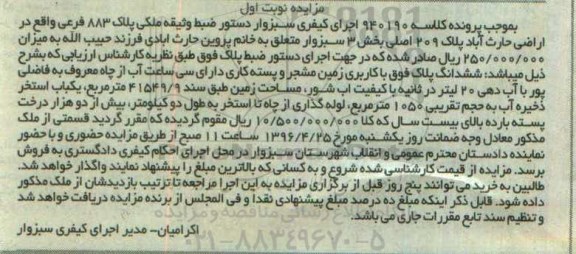 مزایده نوبت اول
بموجب پرونده کلاسه ۹۴۰۱۹۰ اجرای کیفری سبزوار دستور ضبط وثیقه ملکی پلاک ۸۸۳ فرعی واقع در
اراضی حارث آباد پلاک ۲۰۹ اصلی بخش ۳ سبزوار متعلق به خانم پروین حارث ابادی فرزند حبیب الله به میزان
۲۵۰/۰۰۰/۰۰۰ ریال صادر شده که در جهت اجرای دستور ضبط پلاک فوق طبق نظریه کارشناس ارزیابی که بشرح
ذیل میباشد: ششدانگ پلاک فوق با کاربری زمین مشجر و پسته کاری دارای سی ساعت آب از چاه معروف به فاضلی
پور با آب دهی ۲۰ لیتر در ثانیه با کیفیت اب شور، مساحت زمین طبق سند ۴۱۵۴۹/۹ مترمربع، یکباب استخر
ذخیره آب به حجم تقریبی ۱۰۵۰ مترمربع، لوله گذاری از چاه تا استخر به طول دو کیلومتر، بیش از دو هزار درخت
پسته بارده بالای بیست سال که کلا ۱۰/۵۰۰/۰۰۰/۰۰۰ ریال مقوم گردیده که مقرر گردید قسمتی از ملک
مذکور معادل وجه ضمانت روز یکشنبه مورخ ۱۳۹۶/۴/۲۵ ساعت ۱۱ صبح از طریق مزایده حضوری و با حضور
نماینده دادستان محترم عمومی و انقلاب شهرستان سبزوار در محل اجرای احکام کیفری دادگستری به فروش
برسد. مزایده از قیمت کارشناسی شده شروع و به کسانی که بالاترین مبلغ را پیشنهاد نمایند واگذار خواهد شد.
طالبین به خرید می توانند پنج روز قبل از برگزاری مزایده به این اجرا مراجعه تا ترتیب بازدیدشان از ملک مذکور
داده شود. قابل ذکر اینکه مبلغ ده درصد مبلغ پیشنهادی نقدا و فی المجلس از برنده مزایده دریافت خواهد شد
و تنظیم سند تابع مقررات جاری می باشد.
اکرامیان- مدیر اجرای کیفری سبزوار
۰۲۱-۸۸۳۴۹۶۷۰-۵